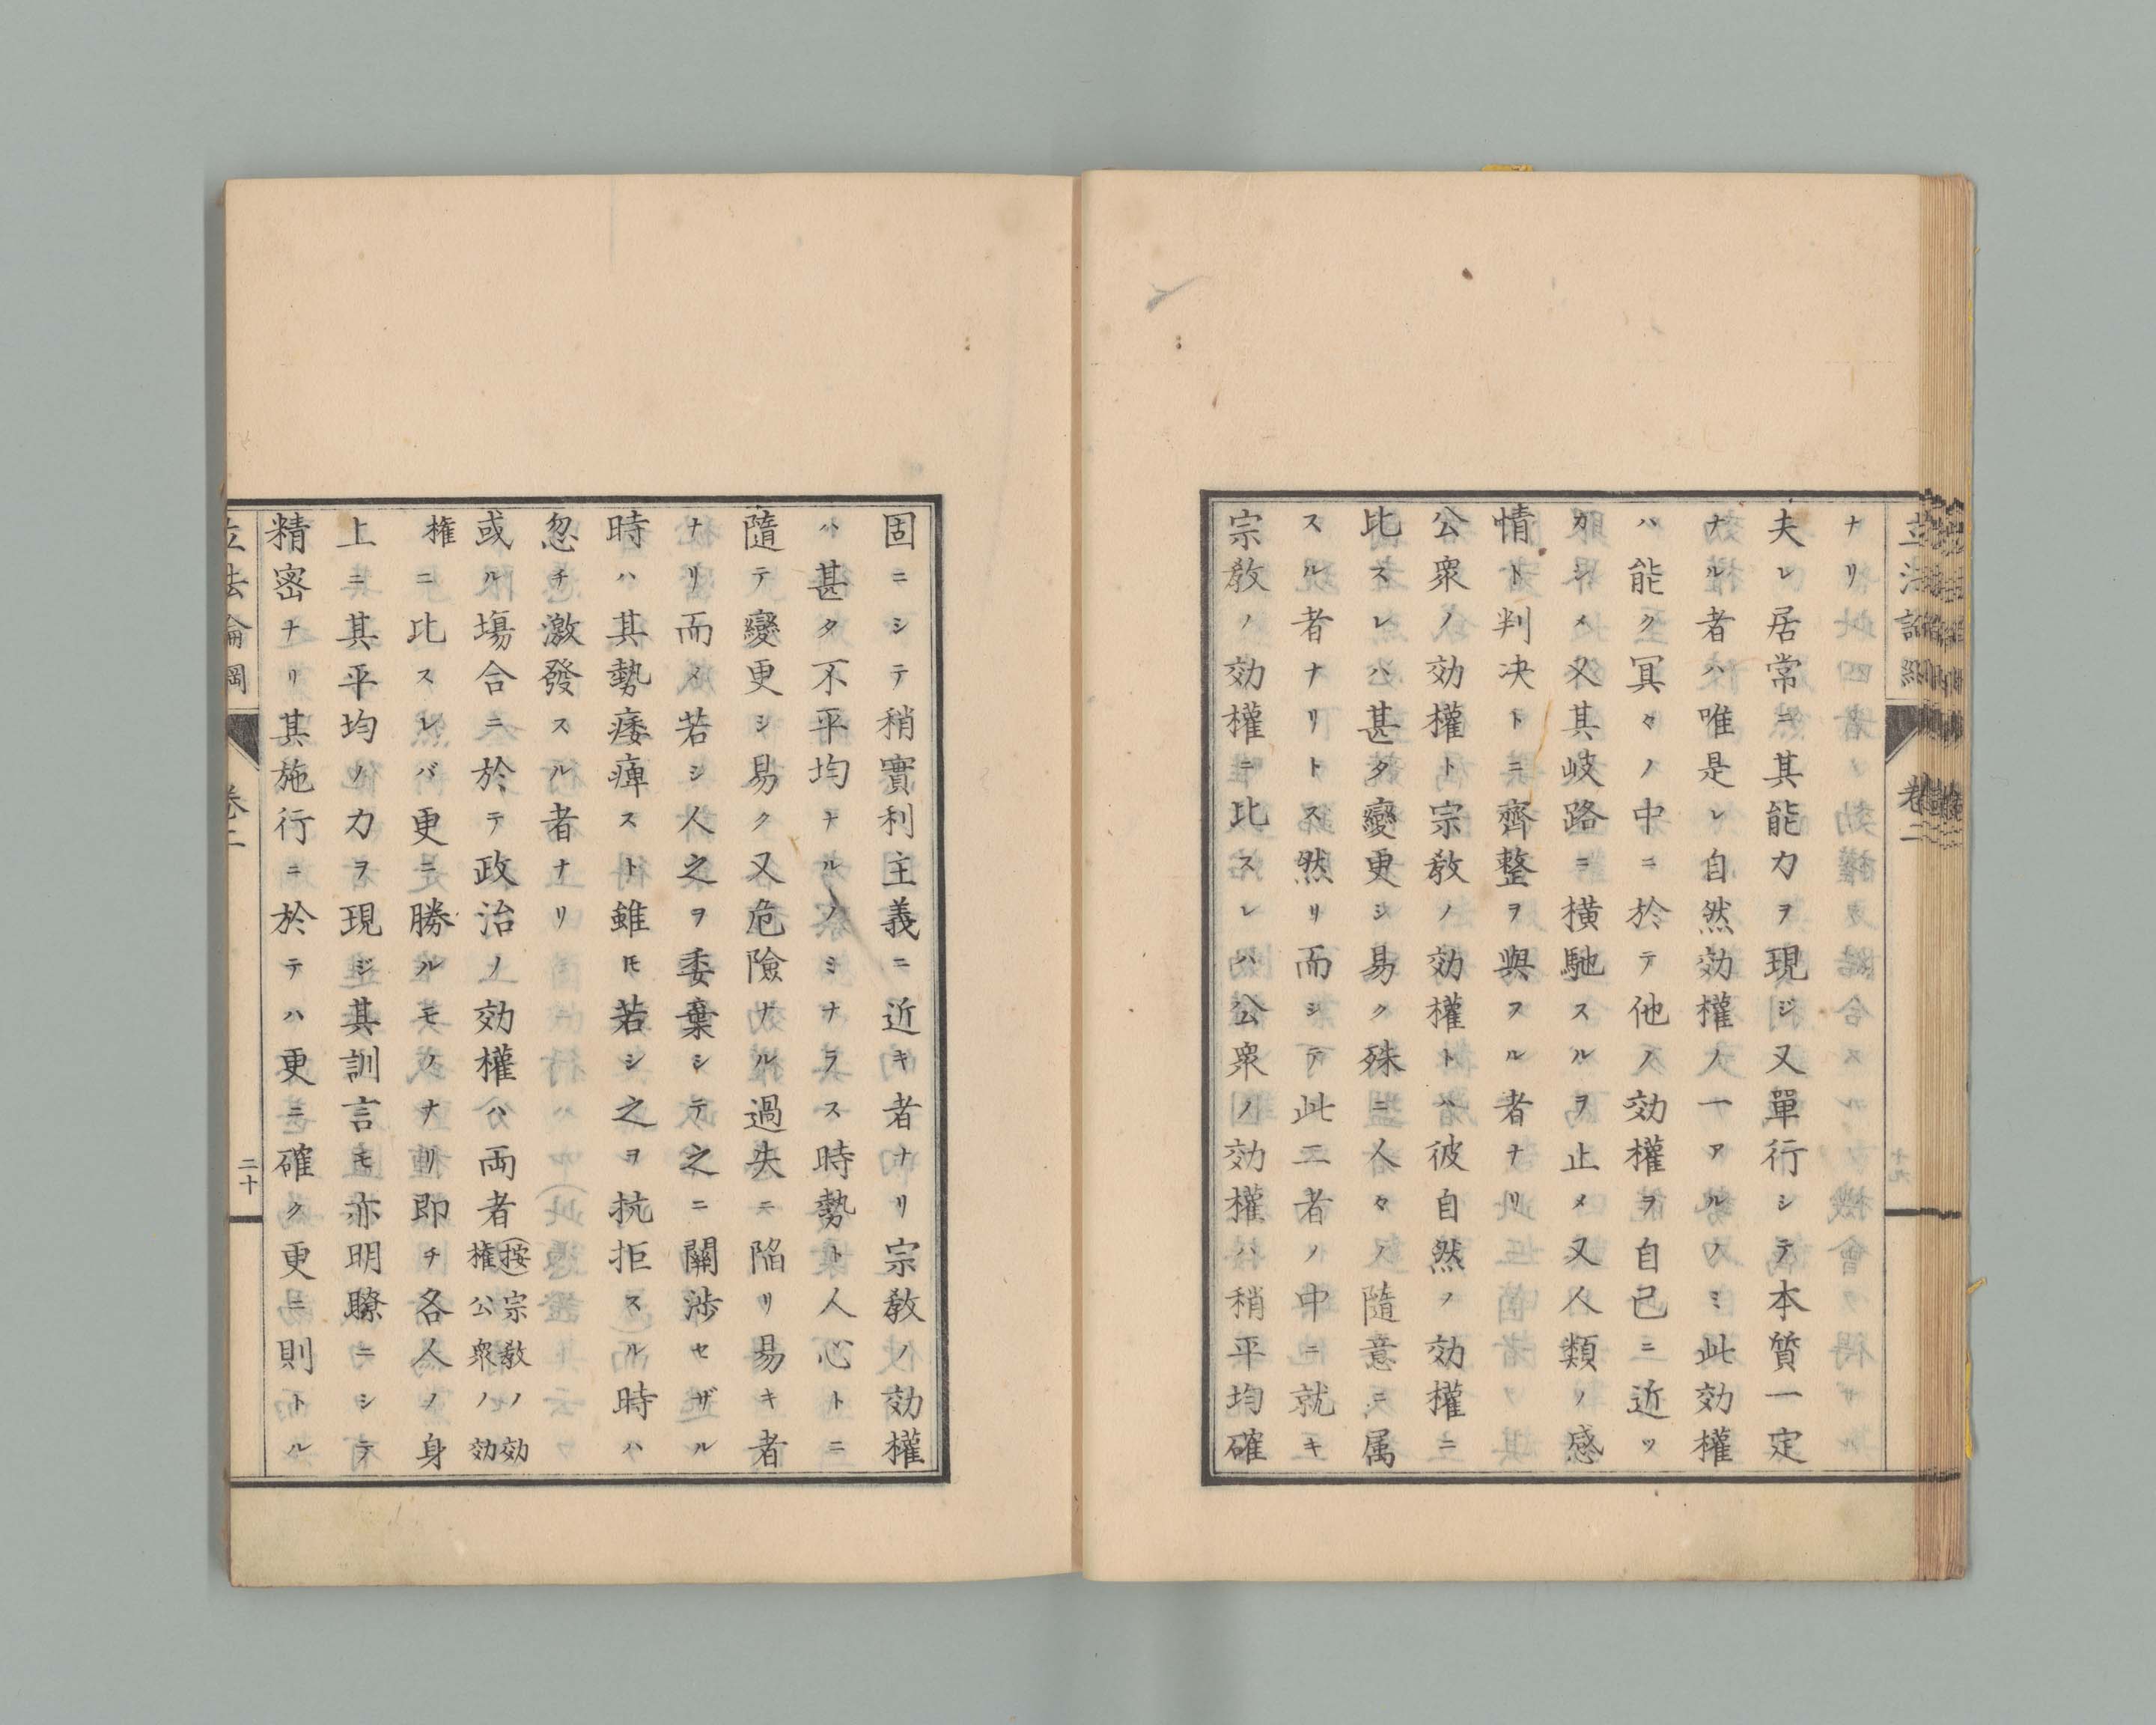 立法論綱
卷二
十九
ナリ
夫レ居常ニ其能力ヲ現ジ又單行シテ本質一定
ナル者ハ唯是レ自然効權ノ一アルノミ此効權
ハ能ク冥々ノ中ニ於テ他ノ効權ヲ自己ニ近ツ
カシメ又其岐路ニ橫馳スルヲ止メ又人類ノ感
情ト判决トニ齊整ヲ與フル者ナリ
公衆ノ効權ト宗敎ノ効權トハ彼自然ノ効權ニ
比スレハ甚タ變更シ易ク殊ニ人々ノ隨意ニ属
スル者ナリトス然リ而シテ此二者ノ中ニ就キ
宗敎ノ効權ニ比スレハ公衆ノ効權ハ稍平均確
固ニシテ稍實利主義ニ近キ者ナリ宗敎ノ効權
ハ甚タ不平均ナルノミナラス時勢ト人心トニ
隨テ變更シ易ク又危險ナル過失ニ陷リ易キ者
ナリ而メ若シ人之ヲ委棄シテ之ニ關渉セザル
時ハ其勢痿痺スト雖𪜈若シ之ヲ抗拒スル時ハ
忽チ激發スル者ナリ
或ル塲合ニ於テ政治ノ効權ハ両者(按)宗敎ノ効權公衆ノ効
權ニ比スレバ更ニ勝ルモノナリ即チ各人ノ身
上ニ其平均ノ力ヲ現ジ其訓言モ亦明瞭ニシテ
精密ナリ其施行ニ於テハ更ニ確ク更ニ則トル
立法論綱
卷二
二十